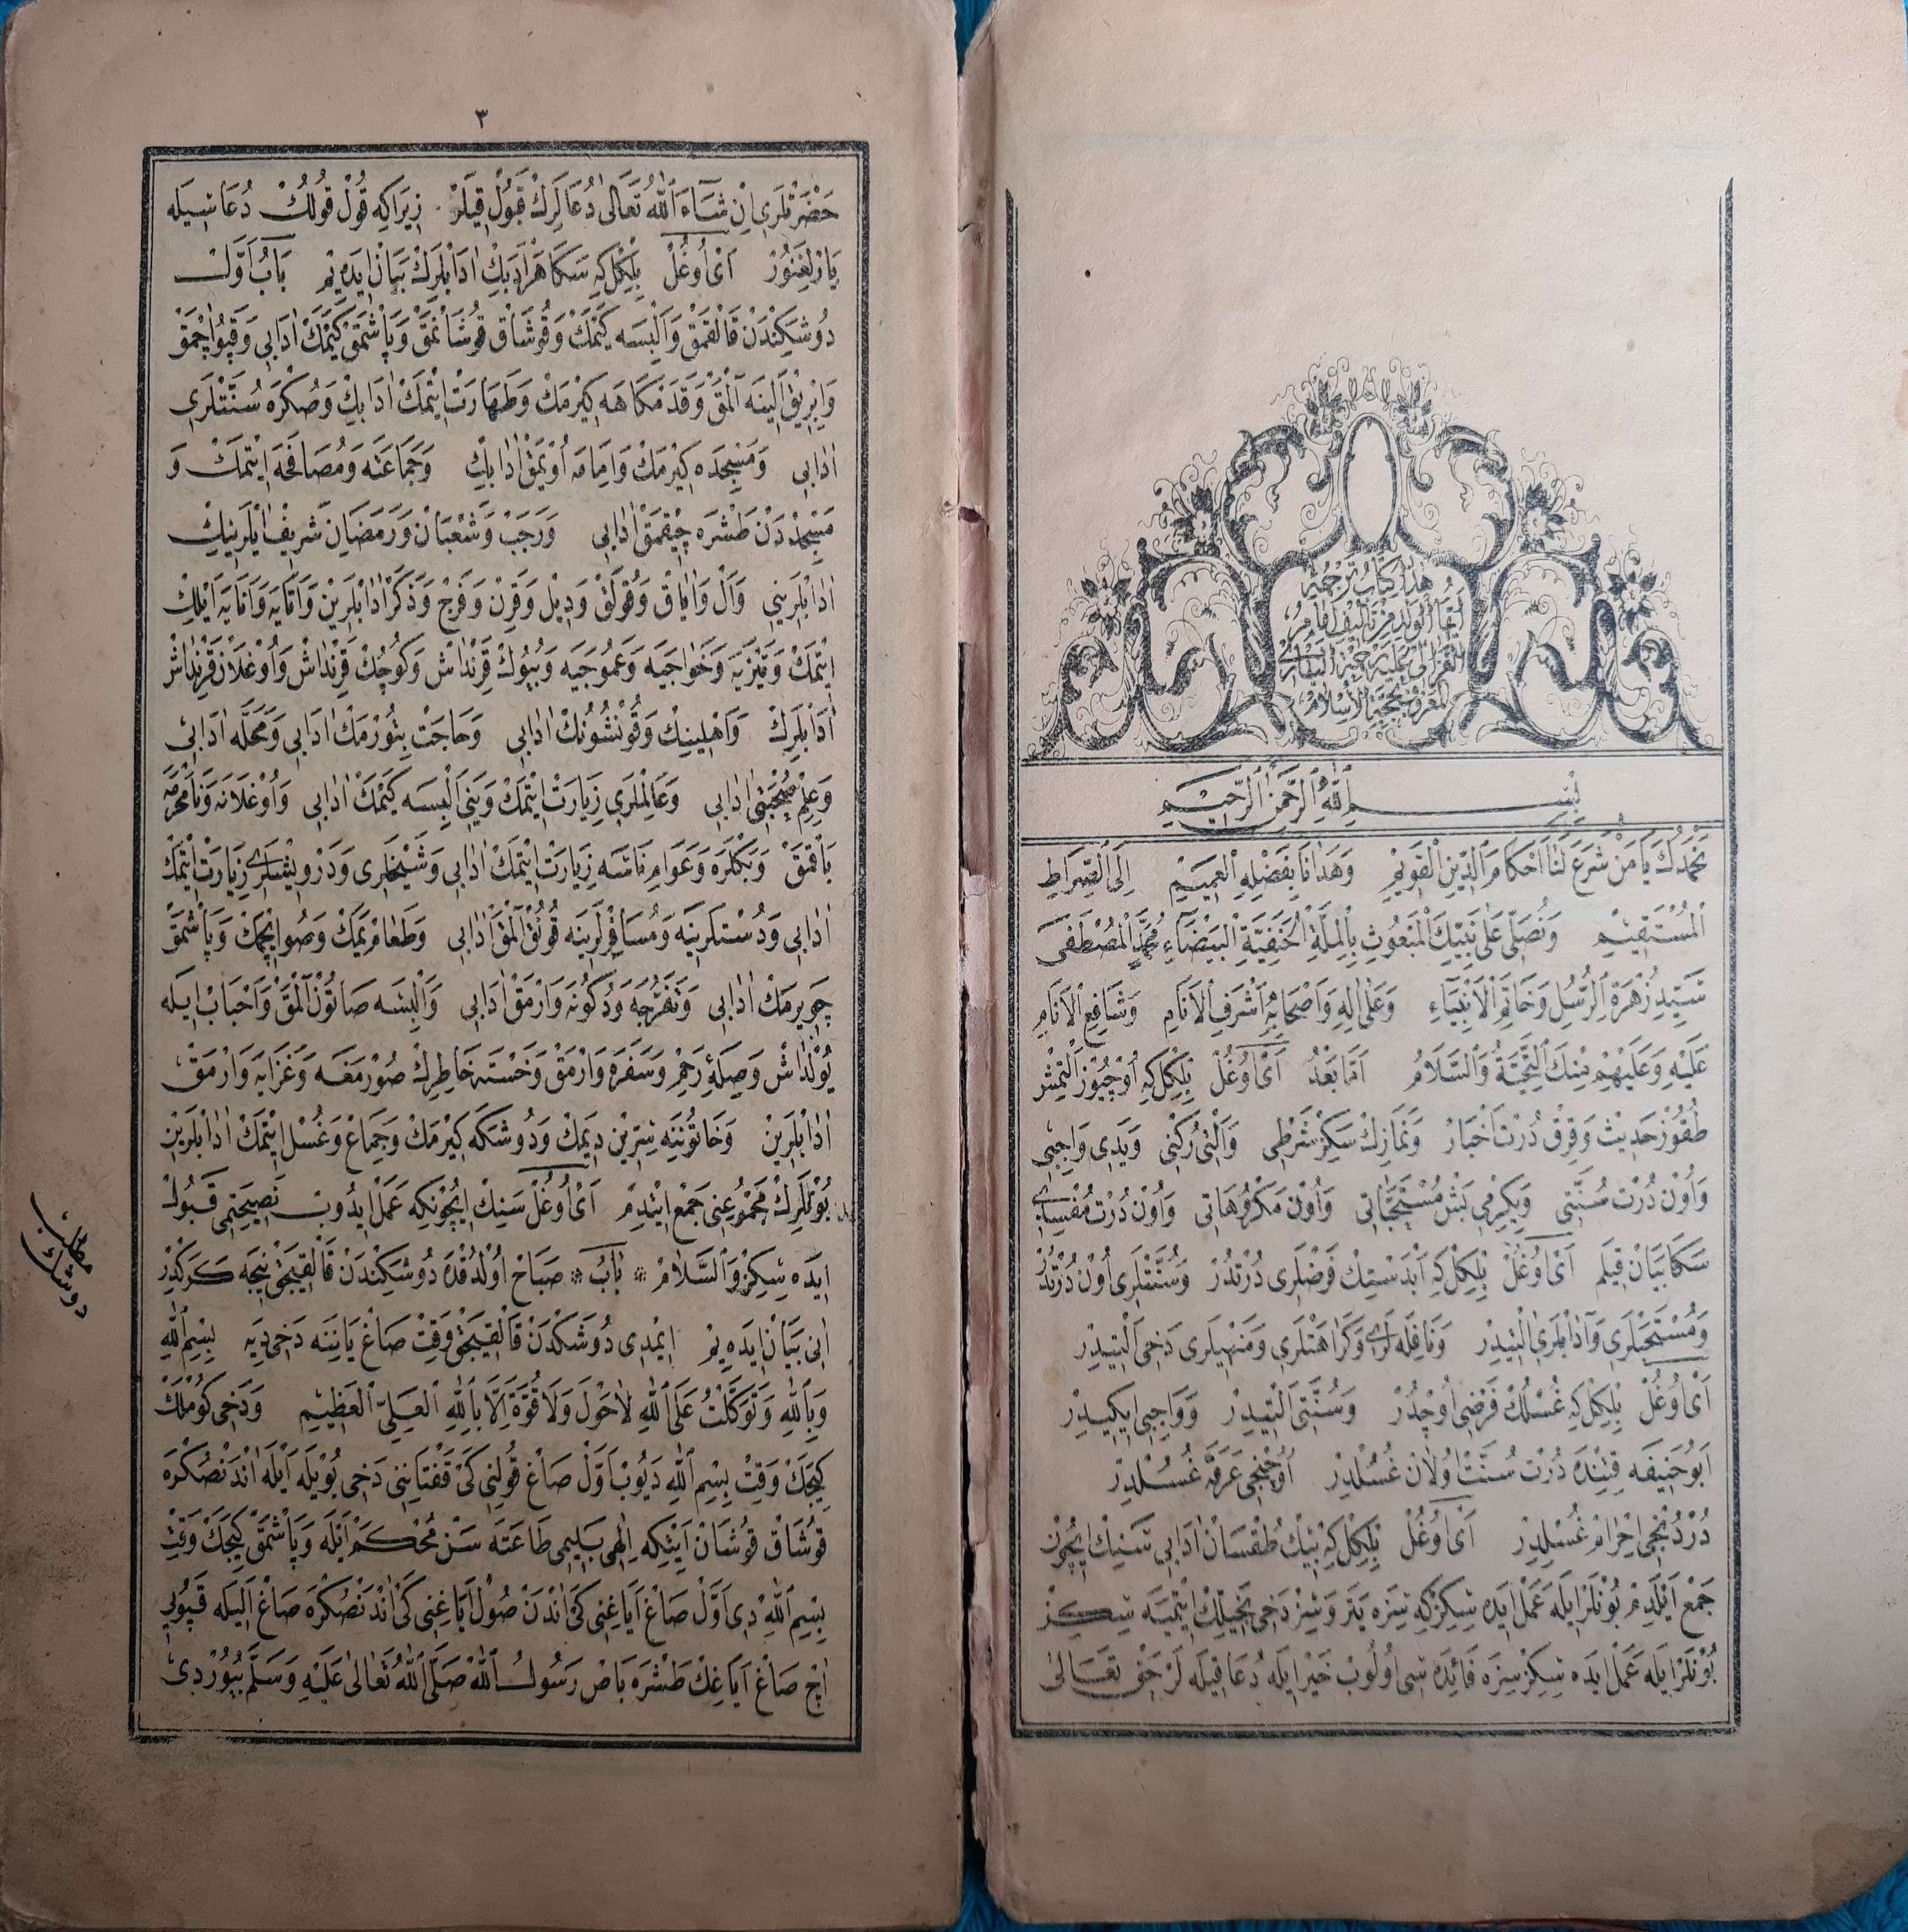 هذا كتاب ترجمۀ
ايها الولد من تأليف امام
الغزالى عليه رحمة البارى
المعروف بحجة الاسلام
بِسْمِ اللهِ الرَّحْمٰنِ الرَّحِيمِ
نَحْمَدُكَ يَا مَنْ شَرَعَ لَنَا اَحْكَامَ الدِّينِ الْقَوِيمِ وَهَدَانَا بِفَضْلِهِ الْعَمِيمِ اِلَى الصِّرَاطِ
الْمُسْتَقِيمِ وَنُصَلِّى عَلٰى نَبِيِّكَ الْمَبْعُوثِ بِالْمِلَّةِ الْحَنَفِيَّةِ الْبَيْضَاءِ مُحَمَّدٍ الْمُصْطَفٰى
سَيِّدِ زُهْرَةِ الرُّسُلِ وَخَاتَمِ الْاَنْبِيَاءِ وَعَلٰى اٰلِهِ وَاَصْحَابِهِ اَشْرَفِ الْاَنَامِ وَشَافِعِ الْاَنَامِ
عَلَيْهِ وَعَلَيْهِمْ مِنْكَ التَّحِيَّةُ وَالسَّلَامُ اَمَّا بَعْدُ اَىْ اُوغُلْ بِلْكِلْ كِه اُوچيُوزْ اَلْتِمِشْ
طُقُوزْ حَدِيث وَقِرْقْ دُرْت اَخْبَارْ وَنَمَازِكْ سَكِزْ شَرْطِى وَاَلْتِى رُكْنِى وَيَدِى وَاجِبِى
وَاُونْ دُرْت سُنَّتِى وَيِكِرْمِى بَشْ مُسْتَحَبَّاتِى وَاُونْ مَكْرُوهَاتِى وَاُونْ دُرْت مُفْسِدَاتِى
سَكَا بَيَانْ قِيلَمْ اَىْ اُوغُلْ بِلْكِلْ كِه اَبْدَسْتِكْ فَرْضْلَرِى دُرْتْدُرْ وَسُنَّتْلَرِى اُونْ دُرْتْدُرْ
وَمُسْتَحَبْلَرِى وَاٰدَابْلَرِى اَلْتِيدِرْ وَنَافِلَه لَرِى وَكَرَاهَتْلَرِى وَمَنْهِيلَرِى دَخِى اَلْتِيدِرْ
اَىْ اُوغُلْ بِلْكِلْ كِه غُسْلُكْ فَرْضِى اُوچْدُرْ وَسُنَّتِى اَلْتِيدِرْ وَوَاجِبِى اِيكِيدِرْ
اَبُو حَنِيفَه قَتِنْدَه دُرْت سُنَّتْ اُولَان غُسُلْدِرْ اُوچُنْجِى عَرَفَه غُسُلْدِرْ
دُرْدُنْجِى اِحْرَامْ غُسُلِدِرْ اَىْ اُوغُلْ بِلْكِلْ كِه بِيكْ طُقْسَانْ اٰدَابِى سَنِكْ اِيچُونْ
جَمْع اَيْلَدِمْ بُونْلَرْ اِيلَه عَمَلْ اِيدَه سِكِزْ كِه سِزَه يَتَرْ وَسِزْ دَخِى بَخِيلْلِكْ اِيتْمِيَه سِكِزْ
بُونْلَرْ اِيلَه عَمَلْ اِيدَه سِكِزْ سِزَه فَائِدَه سِى اُولُوبْ خَيْر اِيلَه دُعَا قِيلَه لَرْ حَقْ تَعَالٰى
٣
حَضْرَتْلَرِى اِنْ شَاءَ اللهُ تَعَالٰى دُعَالَرِكْ قَبُولْ قِيلَرْ زِيرَا كِه قُولْ قُولُكْ دُعَاسِيلَه
يَارْلِغَنُورْ اَىْ اُوغُلْ بِلْكِلْ كِه سَكَا هَرْ اَدَبِكْ اٰدَابْلَرِكْ بَيَانْ اِيدَه يِمْ بَابُ اَوَّلْ
دُوشَكِنْدَنْ قَالْقْمَقْ وَاَلْبِسَه كَيْمَكْ وَقُوشَاقْ قُوشَانْمَقْ وَپَاشْمَقْ كَيْمَكْ اٰدَابِى وَقَپُو اَچْمَقْ
وَاِبْرِيقْ اَلِينَه اَلْمَقْ وَقَدَمْكَاهَه كِيرْمَكْ وَطَهَارَتْ اِيتْمَكْ اٰدَابِكْ وَصُكْرَه سُنَّتْلَرِى
اٰدَابِى وَمَسْجِدَه كِيرْمَكْ وَاِمَامَه اُويْمَقْ اٰدَابِكْ وَجَمَاعَتَه وَمُصَافَحَه اِيتْمَكْ وَ
مَسْجِدْدَنْ طَشْرَه چِيقْمَقْ اٰدَابِى وَرَجَبْ وَشَعْبَانْ وَرَمَضَانِ شَرِيفْ اٰيْلَرِينِكْ
اٰدَابْلَرِينِى وَاَلْ وَاٰيَاقْ وَقُولَقْ وَدِيلْ وَقَرِنْ وَفَرْجْ وَذَكَرْ اٰدَابْلَرِينْ وَاَتَايَه وَاَنَايَه اَيْلِكْ
اِيتْمَكْ وَتَيْزَيَه وَخَوَاجَيَه وَعَمُوجَيَه وَبُيُوكْ قَرِنْدَاشْ وَكُوچُكْ قَرِنْدَاشْ وَاُوغْلَانْ قَرِنْدَاشْ
اٰدَابْلَرِكْ وَاَهْلِينِكْ وَقُونْشُونُكْ اٰدَابِى وَحَاجَتْ بِتُورْمَكْ اٰدَابِى وَمَحَلَّه اٰدَابِى
وَعِلْمِ صُحْبَتِى اٰدَابِى وَعَالِمْلَرِى زِيَارَتْ اِيتْمَكْ وَيَنِى اَلْبِسَه كَيْمَكْ اٰدَابِى وَاُوغْلَانَه وَنَامَحْرَمَه
بَاقْمَقْ وَبَكْلَرَه وَعَوَامِ نَاسَه زِيَارَتْ اِيتْمَكْ اٰدَابِى وَشَيْخْلَرِى وَدَرْوِيشْلَرِى زِيَارَتْ اِيتْمَكْ
اٰدَابِى وَدُوسْتْلَرِينَه وَمُسَافِرْلَرِينَه قُونُقْ اَلْمَقْ اٰدَابِى وَطَعَامْ يَمَكْ وَصُو اِيچْمَكْ وَپَاشْمَقْ
چَوِيرْمَكْ اٰدَابِى وَتَفَرُّجَه وَدُكُونَه وَارْمَقْ اٰدَابِى وَاَلْبِسَه صَاتُونْ اَلْمَقْ وَاَحْبَابْ اِيلَه
يُولْدَاشْ وَصِلَۀِ رَحِمْ وَسَفَرَه وَارْمَقْ وَخَسْتَه خَاطِرِكْ صُورْمَغَه وَغَزَايَه وَارْمَقْ
اٰدَابْلَرِينْ وَخَاتُونِنَه سِرِّينْ دِيمَكْ وَدُوشَكَه كِيرْمَكْ وَجِمَاعْ وَغُسْل اِيتْمَكْ اٰدَابْلَرِينْ
بُونْلَرِكْ مَجْمُوعِنِى جَمْع اِيتْدِمْ اَىْ اُوغُلْ سَنِكْ اِيچُونْ كِه عَمَلْ اِيدُوبْ نَصِيحَتِمِى قَبُولْ
اِيدَه سِكِزْ وَالسَّلَامْ * بَابْ * صَبَاحْ اُولْدُقْدَه دُوشَكِنْدَنْ قَالْقِيجَقْ نِيجَه كَرَكْدِرْ
اٰنِى بَيَانْ اِيدَه يِمْ اِيمْدِى دُوشَكْدَنْ قَالْقِيجَقْ وَقِتْ صَاغْ يَانِنَه دَخِى دِيَه بِسْمِ اللهِ
وَبِاللهِ وَتَوَكَّلْتُ عَلَى اللهِ لَاحَوْلَ وَلَا قُوَّةَ اِلَّا بِاللهِ الْعَلِىِّ الْعَظِيمِ وَدَخِى كُومْلَكْ
كِيجَكْ وَقِتْ بِسْمِ اللهِ دَيُوبْ اَوَّلْ صَاغْ قُولِنِى كَىْ قَفْتَانِنِى دَخِى بُويْلَه اَيْلَه اَنْدَنْصُكْرَه
قُوشَاقْ قُوشَانْ اَيْتْكِه اِلٰهِى بَيْلِيمِى طَاعَتَه سَنْ مُحْكَمْ اَيْلَه وَپَاشْمَقْ كِيجَكْ وَقِتْ
بِسْمِ اللهْ دِى اَوَّلْ صَاغْ اَيَاغِنِى كَىْ اَنْدَنْ صُولْ اَيَاغِنِى كَىْ اَنْدَنْصُكْرَه صَاغْ اَلِيلَه قَپُويِى
اَچْ صَاغْ اَيَاغِكْ طَشْرَه بَاصْ رَسُولُ اللهْ صَلَّى اللهُ تَعَالٰى عَلَيْهِ وَسَلَّمَ بُيُورْدِى
مطلب
دوشك